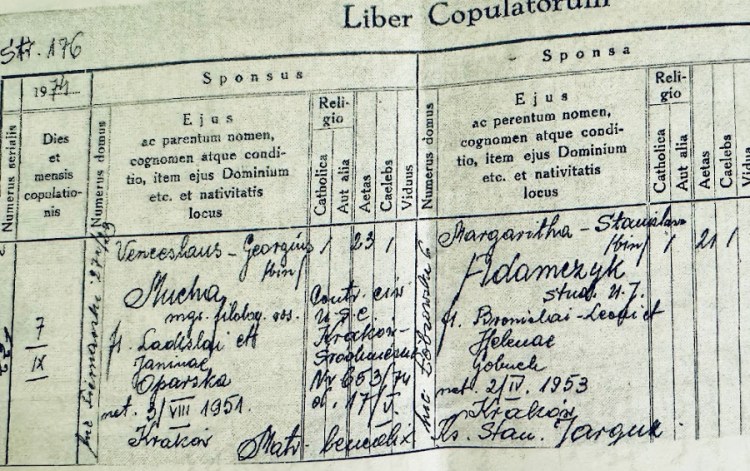 Liber Copulatorum
Str. 176
1974
Sponsus
Sponsa
Numerus serialis
Dies
et
mensis
copulatio-
nis
Numerus domus
Ejus
ac parentum nomen,
cognomen atque condi-
tio, item ejus Dominium
etc. et nativitatis
locus
Reli-
gio
Catholica
Aut alia
Aetas
Caelebs
Viduus
Numerus domus
Ejus
ac parentum nomen,
cognomen atque condi-
tio, item ejus Dominium
etc. et nativitatis
locus
Reli-
gio
Catholica
Aut alia
Aetas
Caelebs
7
IX
Venceslaus - Georgius / 23 /
/bin/
Mucha
mgr. filolog. ros.
f. Ladislai et
Janinae
Oparska
nat. 3/VIII 1951.
Kraków
Contr. civ
U.S.C.
Kraków-
Nr 653/74
d. 17/V.
Matr. bened.
Margaritha - Stanislava
/bin/ / 21 /
Adamczyk
stud. U.J.
f. Bronislai - et
Helenae
nat. 2/IV. 1953
Kraków
Ks. Stan.